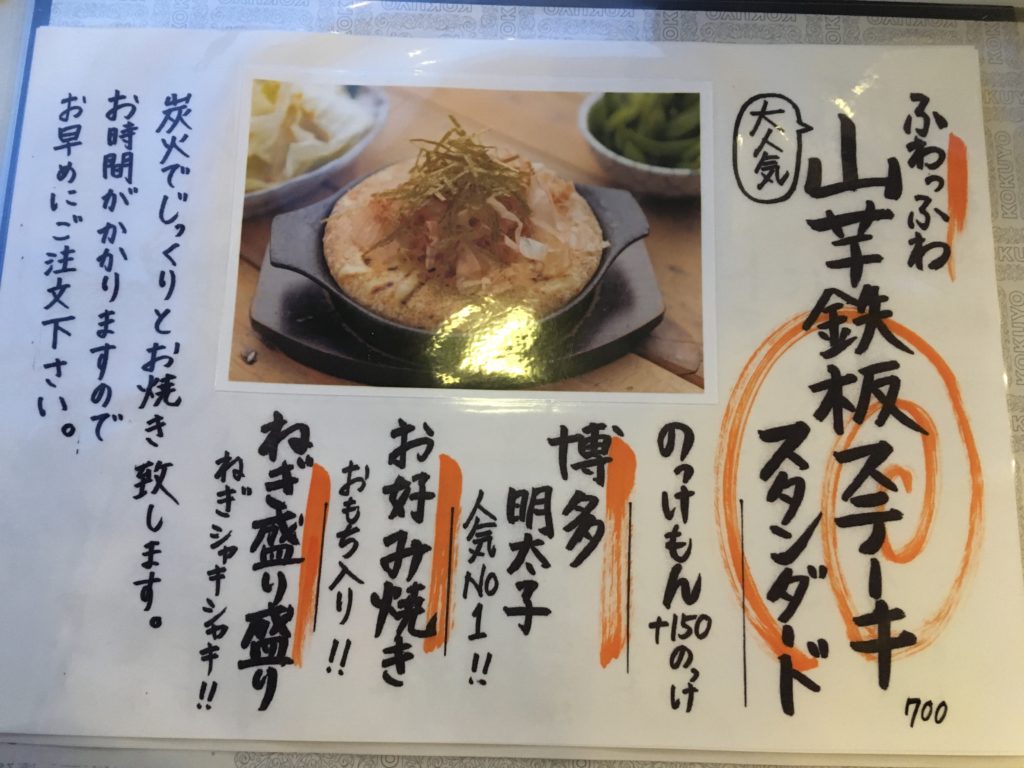 ふわっふわ
大人気
山芋鉄板ステーキ
スタンダード
700
のっけもん
+150のっけ
博多
明太子
人気No1!!
お好み焼き
おもち入り!!
ねぎ盛り盛り
ねぎシャキシャキ!!
炭火でじっくりとお焼き致します。
お時間がかかりますので
お早めにご注文下さい。
KOKUYO